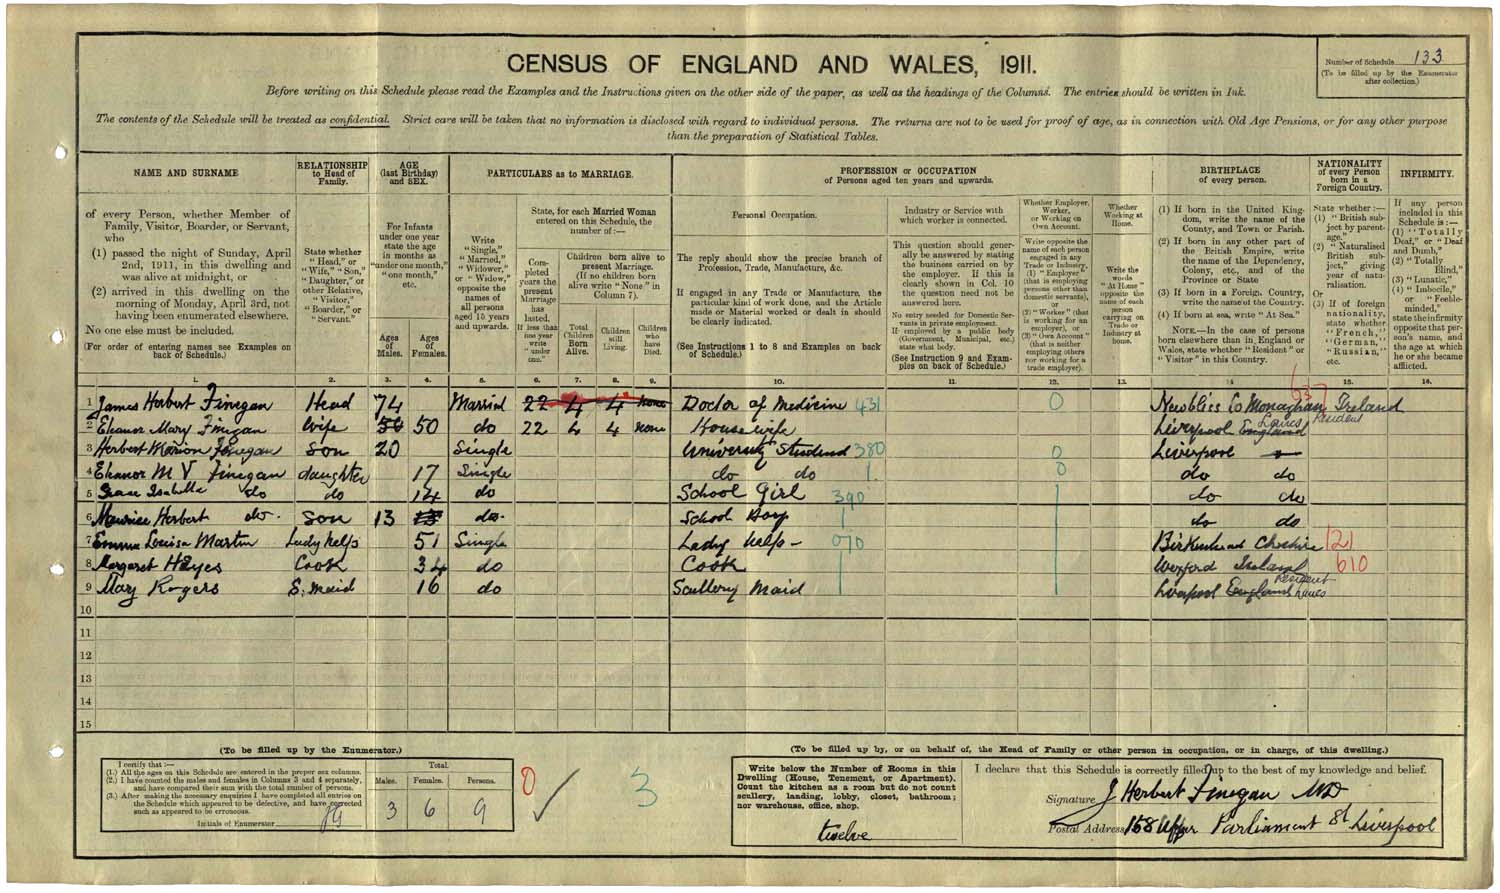 Number of Schedule 133
(To be filled up by the Enumerator
after collection.)
CENSUS OF ENGLAND AND WALES, 1911.
Before writing on this Schedule please read the Examples and the Instructions given on the other side of the paper, as well as the headings of the Columns. The entries should be written in Ink.
The contents of the Schedule will be treated as confidential. Strict care will be taken that no information is disclosed with regard to individual persons. The returns are not to be used for proof of age, as in connection with Old Age Pensions, or for any other purpose
than the preparation of Statistical Tables.
NAME AND SURNAME
of every Person, whether Member of
Family, Visitor, Boarder, or Servant,
who
(1) passed the night of Sunday, April
2nd, 1911, in this dwelling and
was alive at midnight, or
(2) arrived in this dwelling on the
morning of Monday, April 3rd, not
having been enumerated elsewhere.
No one else must be included.
(For order of entering names see Examples on
back of Schedule.)
RELATIONSHIP
to Head of
Family.
State whether
"Head," or
"Wife," "Son,"
"Daughter," or
other Relative,
"Visitor,"
"Boarder," or
"Servant."
AGE
(last Birthday)
and SEX.
For Infants
under one year
state the age
in months as
"under one month,"
"one month,"
etc.
Ages
of
Males.
Ages
of
Females.
PARTICULARS as to MARRIAGE.
Write
"Single,"
"Married,"
"Widower,"
or "Widow,"
opposite the
names of
all persons
aged 15 years
and upwards.
State, for each Married Woman
entered on this Schedule, the
number of:—
Completed
years the
present
Marriage
has
lasted.
If less than
one year
write
"under
one."
Children born alive to
present Marriage.
(If no children born
alive write "None" in
Column 7).
Total
Children
Born
Alive.
Children
still
Living.
Children
who
have
Died.
PROFESSION or OCCUPATION
of Persons aged ten years and upwards.
Personal Occupation.
The reply should show the precise branch of
Profession, Trade, Manufacture, &c.
If engaged in any Trade or Manufacture, the
particular kind of work done, and the Article
made or Material worked or dealt in should
be clearly indicated.
(See Instructions 1 to 8 and Examples on back
of Schedule.)
Industry or Service with
which worker is connected.
This question should generally
be answered by stating
the business carried on by
the employer. If this is
clearly shown in Col. 10
the question need not be
answered here.
No entry needed for Domestic Servants
in private employment.
If employed by a public body
(Government, Municipal, etc.)
state what body.
(See Instruction 9 and Examples
on back of Schedule.)
Whether Employer,
Worker,
or Working on
Own Account.
Write opposite the
name of each person
engaged in any
Trade or Industry,
(1) "Employer"
(that is employing
persons other than
domestic servants),
or
(2) "Worker" (that
is working for an
employer), or
(3) "Own Account"
(that is neither
employing others
nor working for a
trade employer).
Whether
Working at
Home.
Write the
words
"At Home"
opposite the
name of
each
person
carrying on
Trade or
Industry at
home.
BIRTHPLACE
of every person.
(1) If born in the United Kingdom,
write the name of the
County, and Town or Parish.
(2) If born in any other part of
the British Empire, write
the name of the Dependency,
Colony, etc., and of the
Province or State
(3) If born in a Foreign Country,
write the name of the Country.
(4) If born at sea, write "At Sea."
NOTE.—In the case of persons
born elsewhere than in England or
Wales, state whether "Resident" or
"Visitor" in this Country.
NATIONALITY
of every Person
born in a
Foreign Country.
State whether:—
(1) "British subject
by parentage."
(2) "Naturalised
British subject,"
giving
year of naturalisation.
Or
(3) If of foreign
nationality,
state whether
"French,"
"German,"
"Russian,"
etc.
INFIRMITY.
If any person
included in this
Schedule is:—
(1) "Totally
Deaf," or "Deaf
and Dumb,"
(2) "Totally
Blind,"
(3) "Lunatic,"
(4) "Imbecile,"
or "Feeble-
minded,"
state the infirmity
opposite that person's
name, and
the age at which
he or she became
afflicted.
1. 2. 3. 4. 5. 6. 7. 8. 9. 10. 11. 12. 13. 14. 15. 16.
1 James Herbert Finegan Head 74 Married 22 4 4 none Doctor of Medicine 431 0 Newbliss Co Monaghan Ireland 637 Resident
2 Eleanor Mary Finegan Wife 50 50 do 22 4 4 none Housewife Liverpool England Lancs
3 Herbert Marion Finegan Son 20 Single University Student 380 0 Liverpool
4 Eleanor M V Finegan daughter 17 Single do do 0 do do
5 Grace Isabella do do 14 do School Girl 390 do do
6 Maurice Herbert do. Son 13 13 do. School Boy do do
7 Emma Louisa Martin Lady help 51 Single Lady help - 070 Birkenhead Cheshire 121
8 Margaret Hayes Cook 34 do Cook Wexford Ireland 610 Resident
9 Mary Rogers S. maid 16 do Scullery Maid Liverpool England Lancs
10
11
12
13
14
15
(To be filled up by the Enumerator.)
I certify that:—
(1.) All the ages on this Schedule are entered in the proper sex columns.
(2.) I have counted the males and females in Columns 3 and 4 separately,
and have compared their sum with the total number of persons.
(3.) After making the necessary enquiries I have completed all entries on
the Schedule which appeared to be defective, and have corrected
such as appeared to be erroneous.
Initials of Enumerator
Total.
Males. Females. Persons.
3 6 9
0 3
(To be filled up by, or on behalf of, the Head of Family or other person in occupation, or in charge, of this dwelling.)
Write below the Number of Rooms in this
Dwelling (House, Tenement, or Apartment).
Count the kitchen as a room but do not count
scullery, landing, lobby, closet, bathroom;
nor warehouse, office, shop.
twelve
I declare that this Schedule is correctly filled up to the best of my knowledge and belief.
Signature J Herbert Finegan MD
Postal Address 158 Upper Parliament St Liverpool